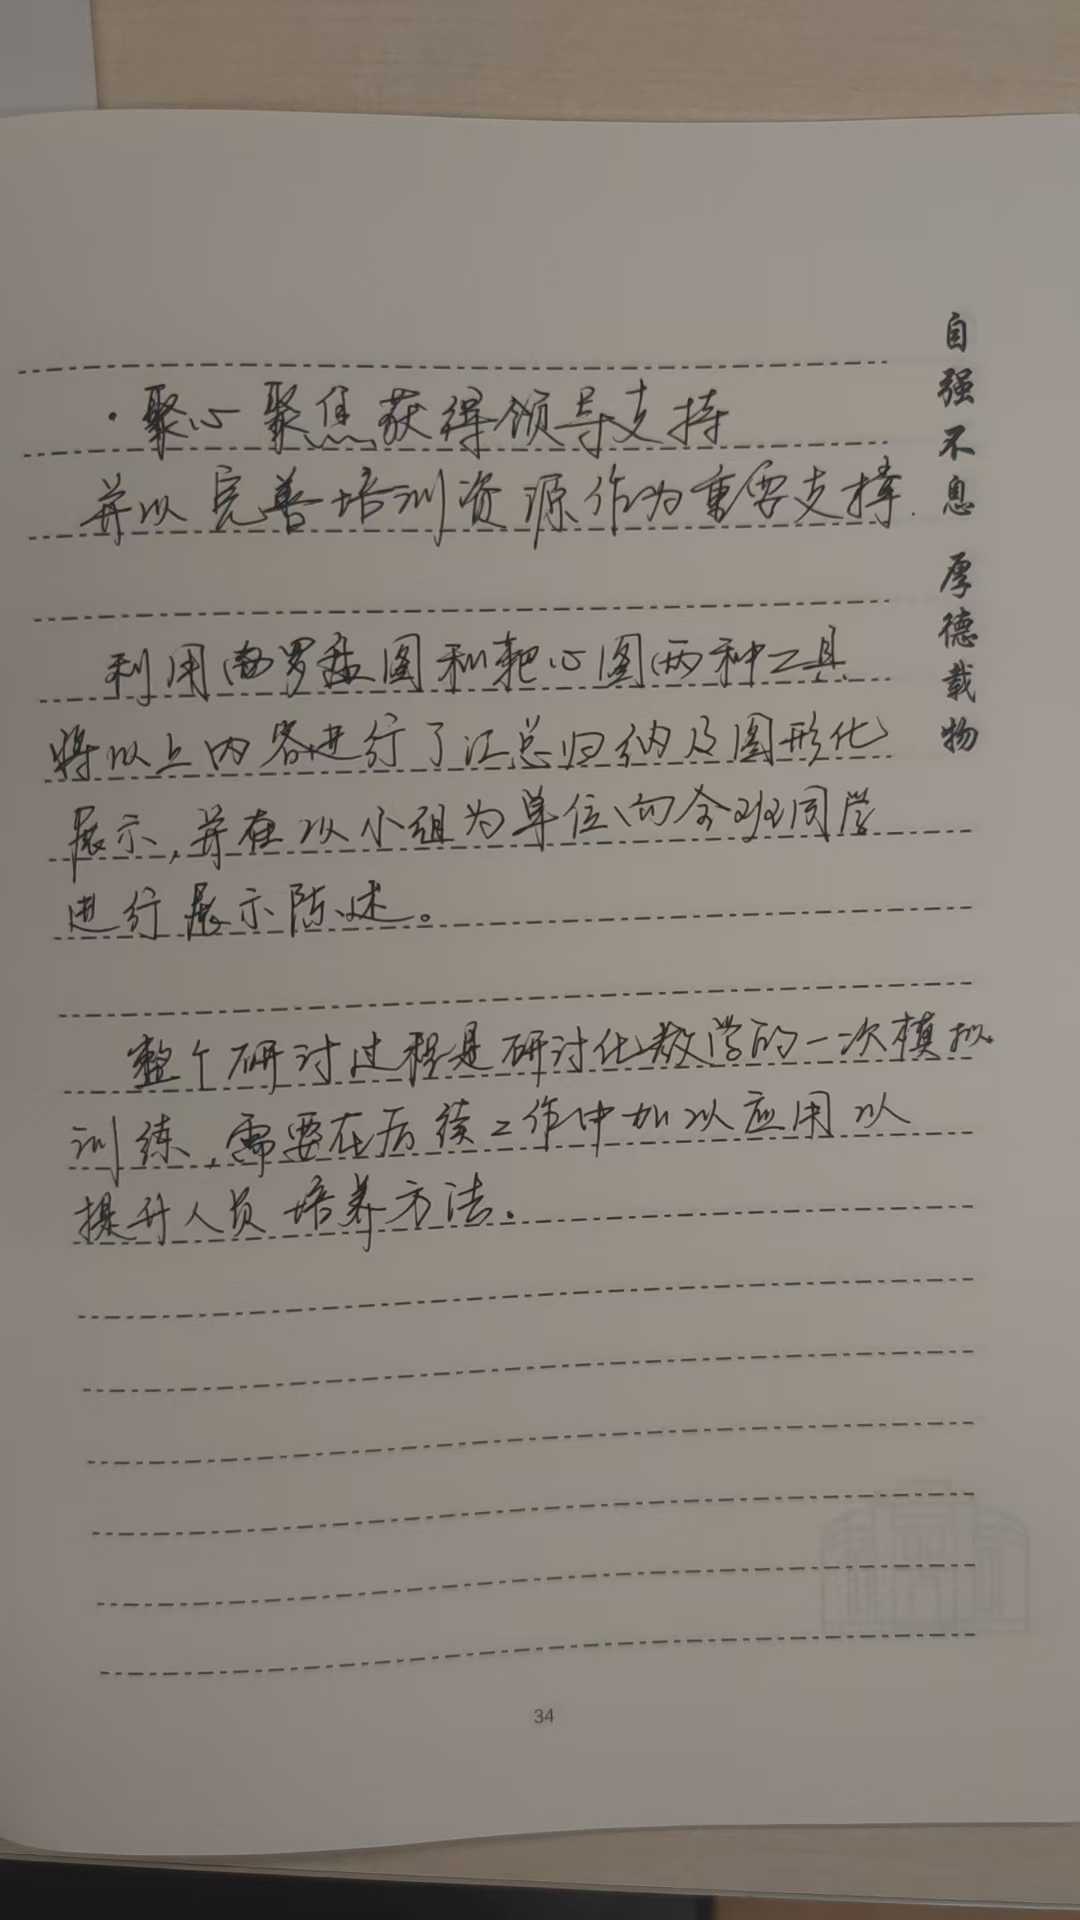 ·聚心聚焦获得领导支持
并以完善培训资源作为重要支撑.
利用曼罗盘图和靶心图两种工具
将以上内容进行了汇总归纳及图形化
展示,并在以小组为单位向全班同学
进行展示陈述。
整个研讨过程是研讨化教学的一次模拟
训练,需要在后续工作中加以应用以
提升人员培养方法.
自强不息 厚德载物
34